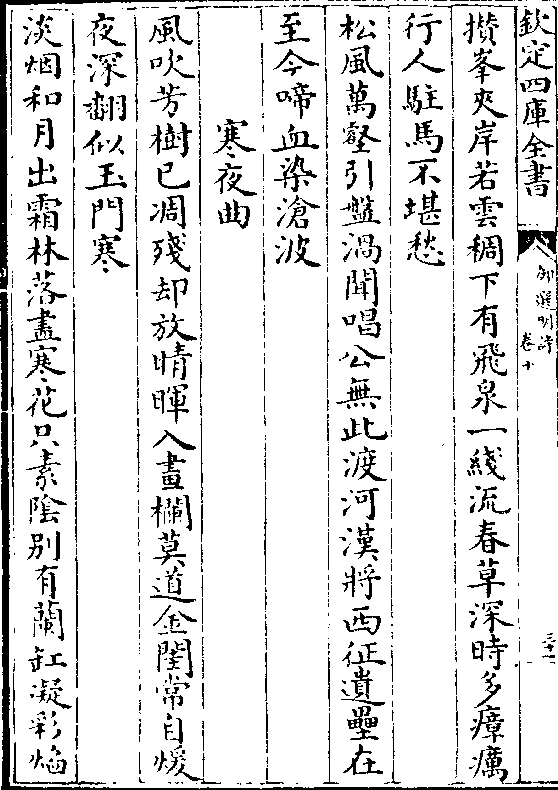 欽定四庫全書
御選明詩
卷十
三十一
攅峯夾岸若雲稠下有飛泉一綫流春草深時多瘴癘
行人駐馬不堪愁
松風萬壑引盤渦聞唱公無此渡河漢將西征遺壘在
至今啼血染滄波
寒夜曲
風吹芳樹已凋殘却放晴暉入畫欄莫道金閨常自煖
夜深翻似玉門寒
淡烟和月出霜林落盡寒花只素陰别有蘭缸凝彩焰